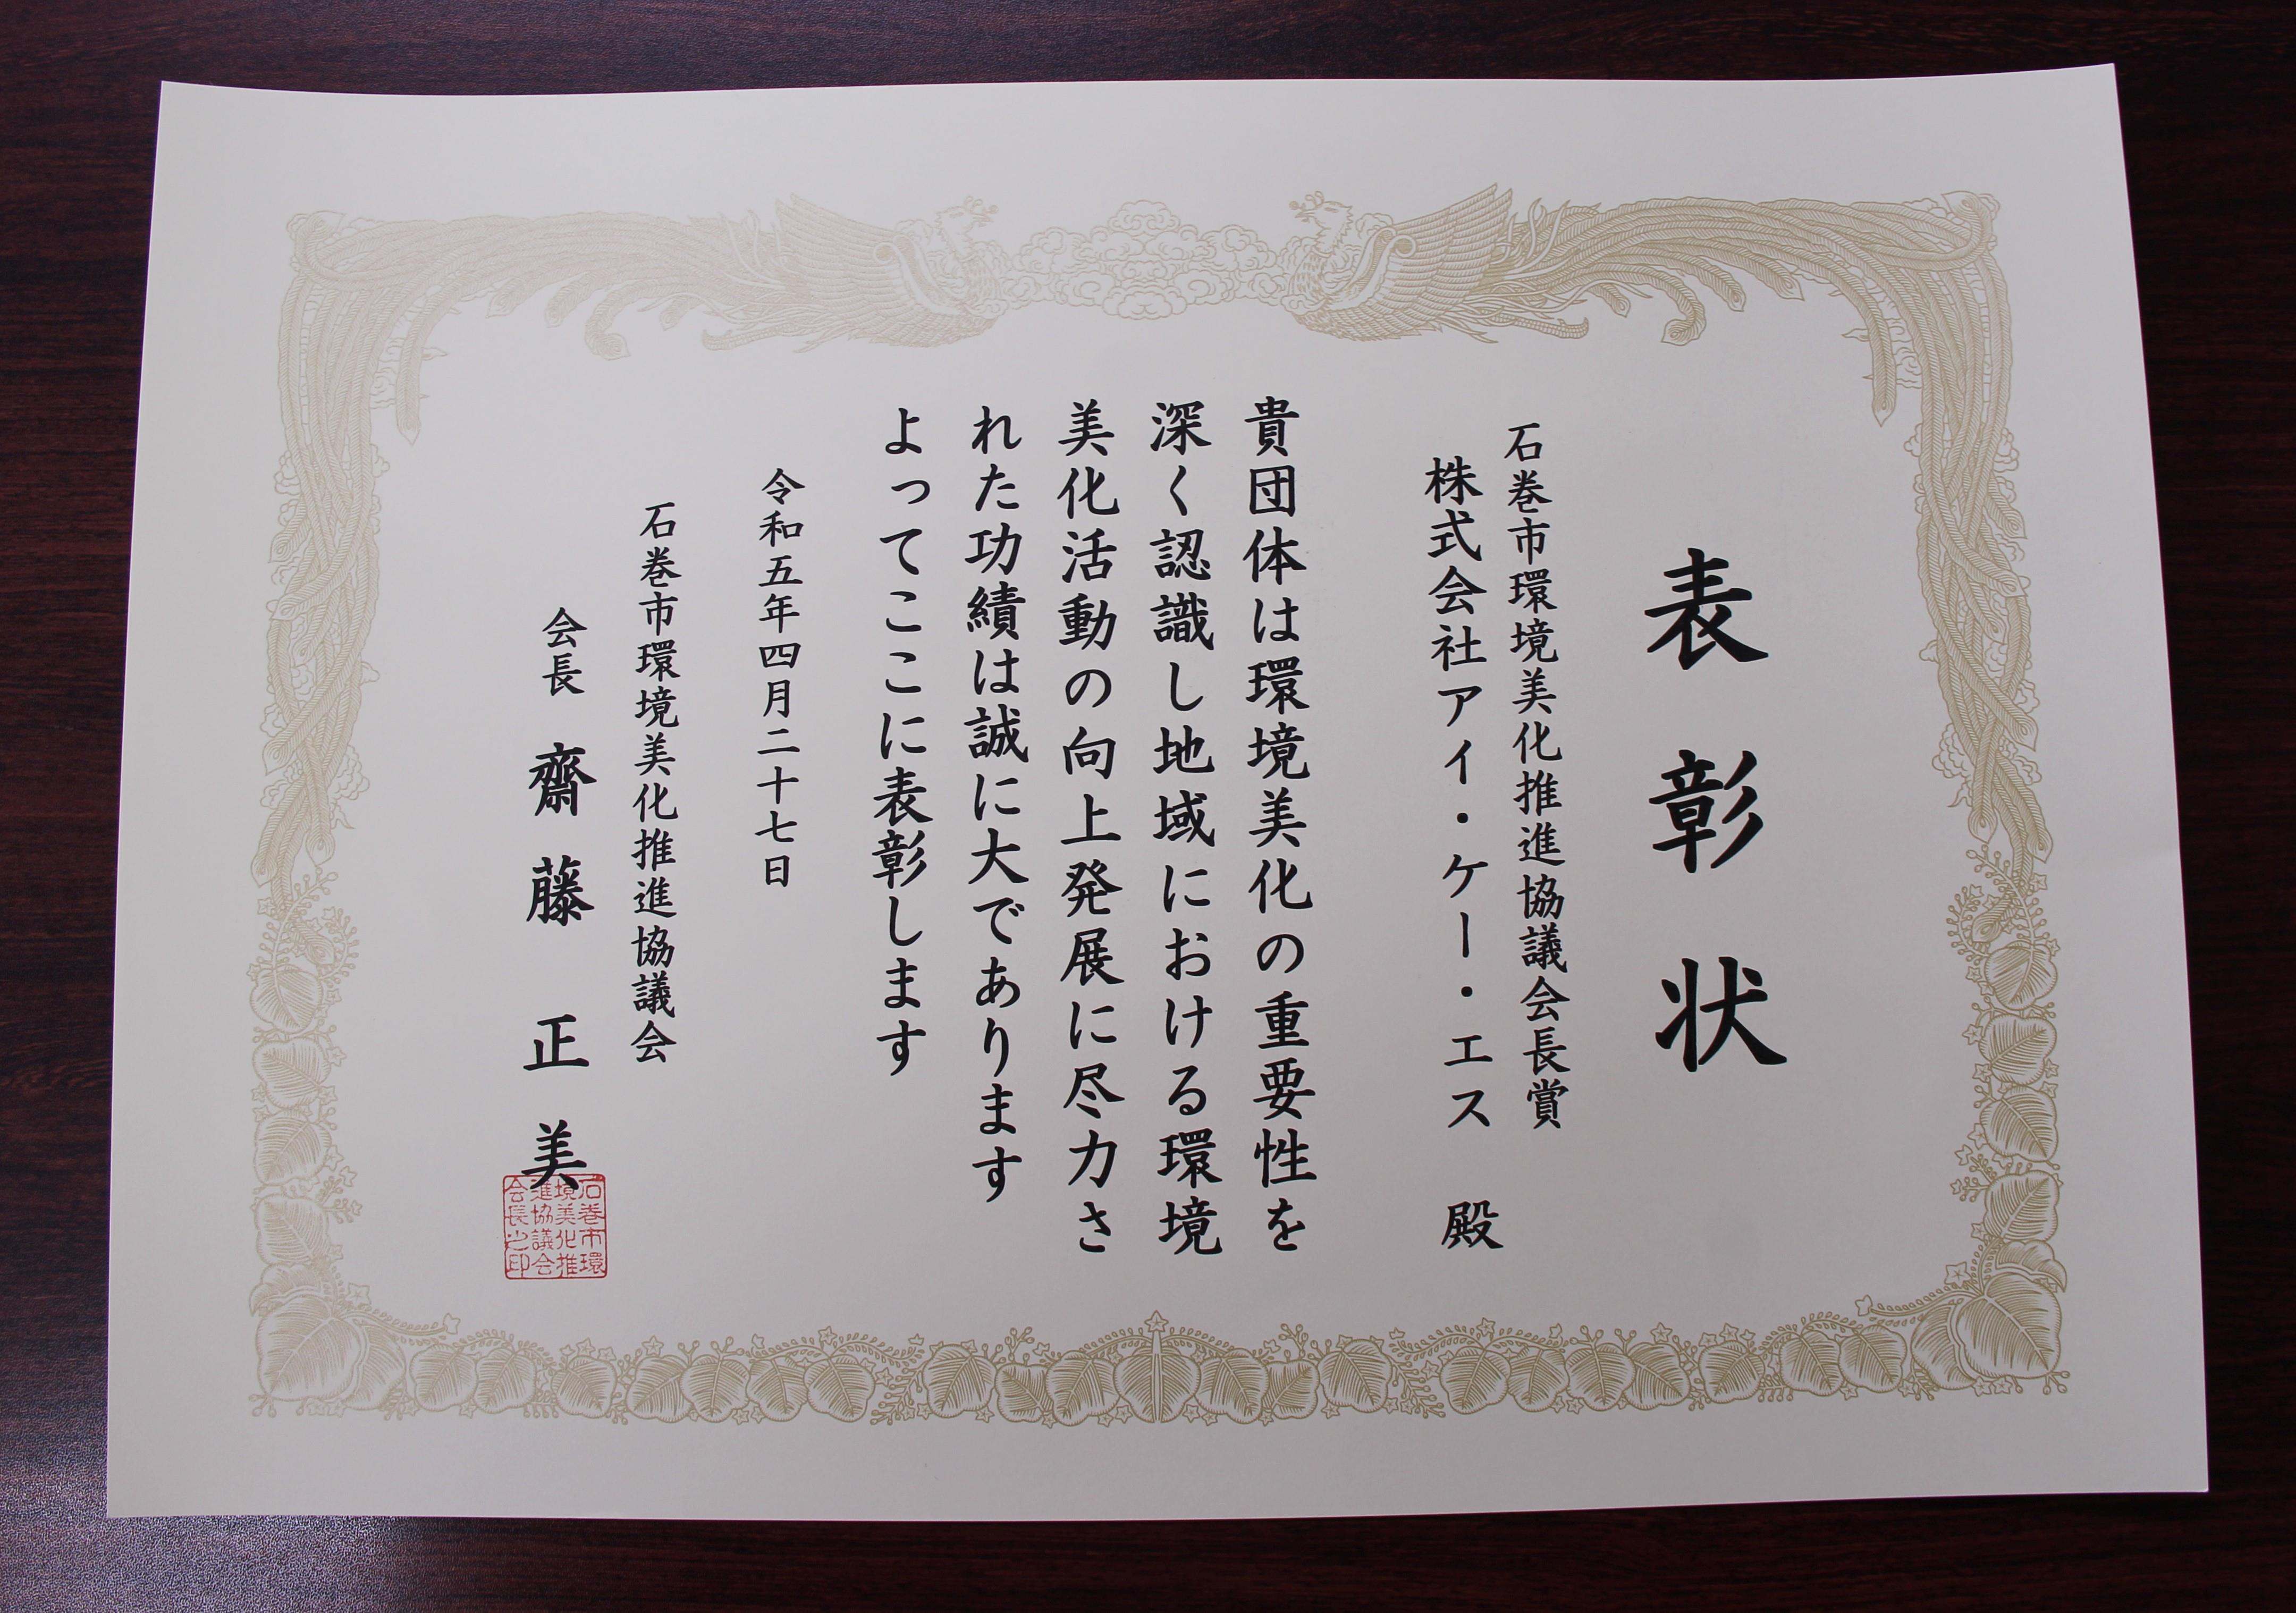 表彰状
石巻市環境美化推進協議会長賞
株式会社アイ・ケー・エス 殿
貴団体は環境美化の重要性を
深く認識し地域における環境
美化活動の向上発展に尽力さ
れた功績は誠に大であります
よってここに表彰します
令和五年四月二十七日
石巻市環境美化推進協議会
会長 齋藤正美
石巻市環
境美化推
進協議会
会長之印